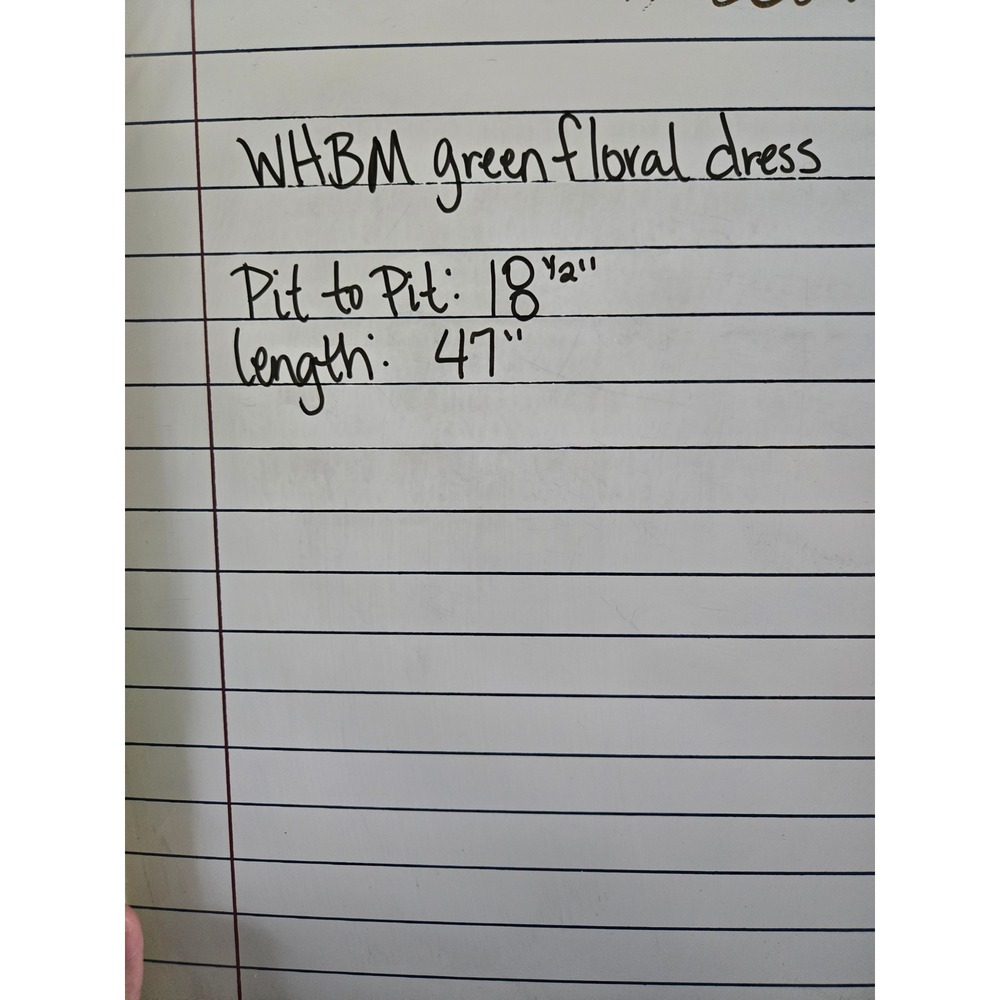 WHBM green floral dress
Pit to Pit: 18 1/2"
length: 47"